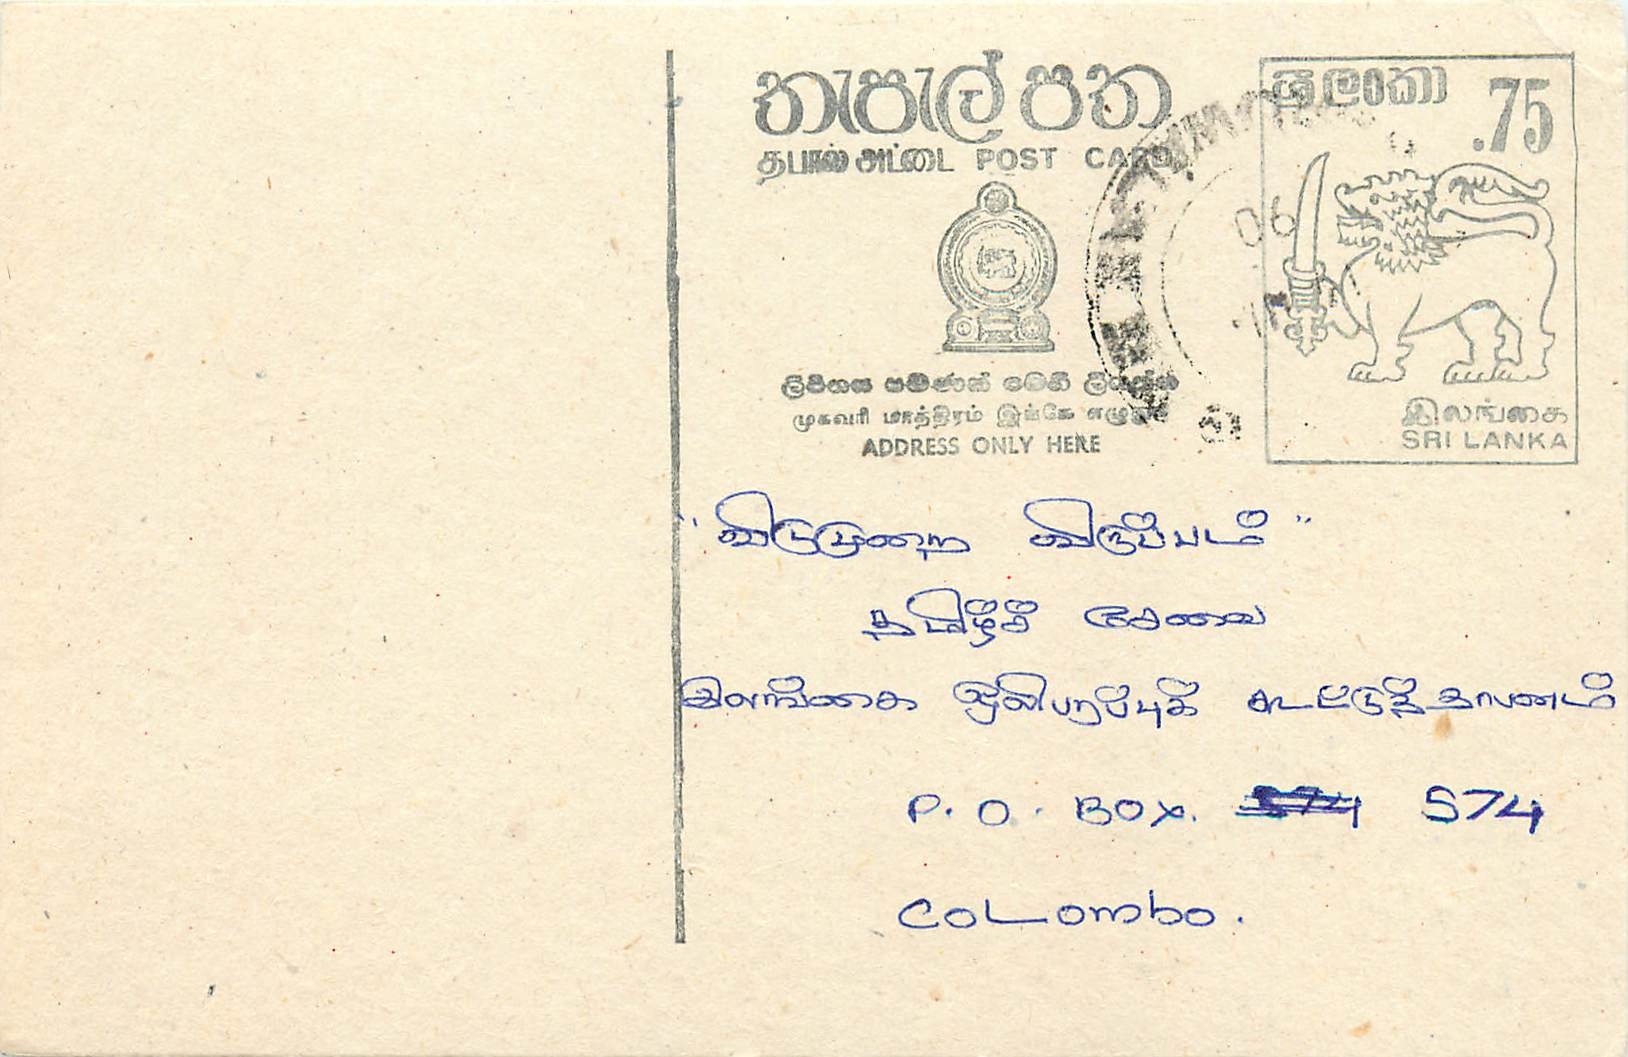 තැපැල් පත
தபால் அட்டை POST CARD
ශ්‍රී ලංකා .75
06
ලිපිනය පමණක් මෙහි ලියන්න
முகவரி மாத்திரம் இங்கே எழுதுக
ADDRESS ONLY HERE
இலங்கை
SRI LANKA
"விடுமுறை விருப்பம்"
தமிழ்ச் சேவை
இலங்கை ஒலிபரப்புக் கூட்டுத்தாபனம்
P.O. BOX. 574 574
Colombo.